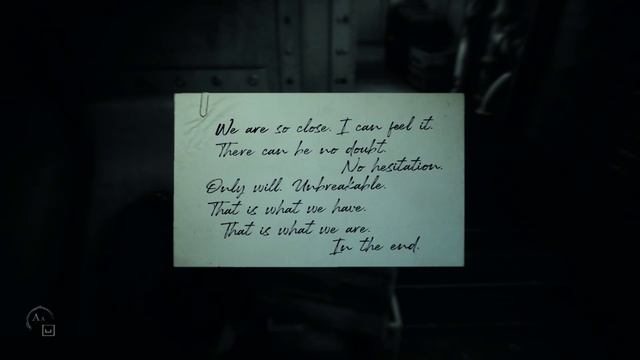 We are so close. I can feel it.
There can be no doubt.
No hesitation.
Only will. Unbreakable.
That is what we have.
That is what we are.
In the end.
AA